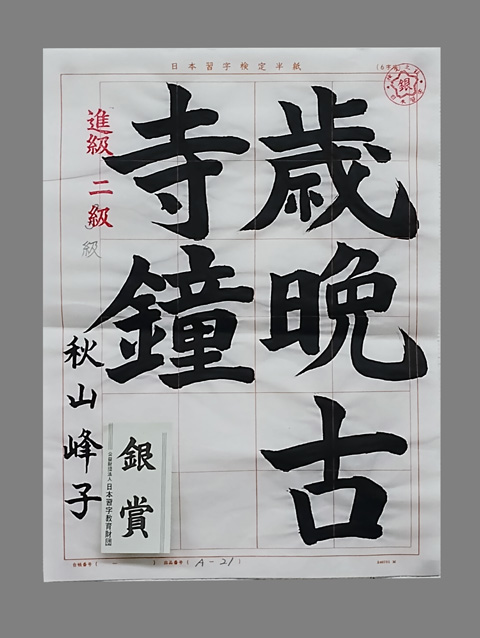 日本習字検定半紙
銀
歳晩古
寺鐘
進級 二級
級
秋山峰子
銀賞
公益財団法人 日本習字教育財団
出品番号 ( A-21 )